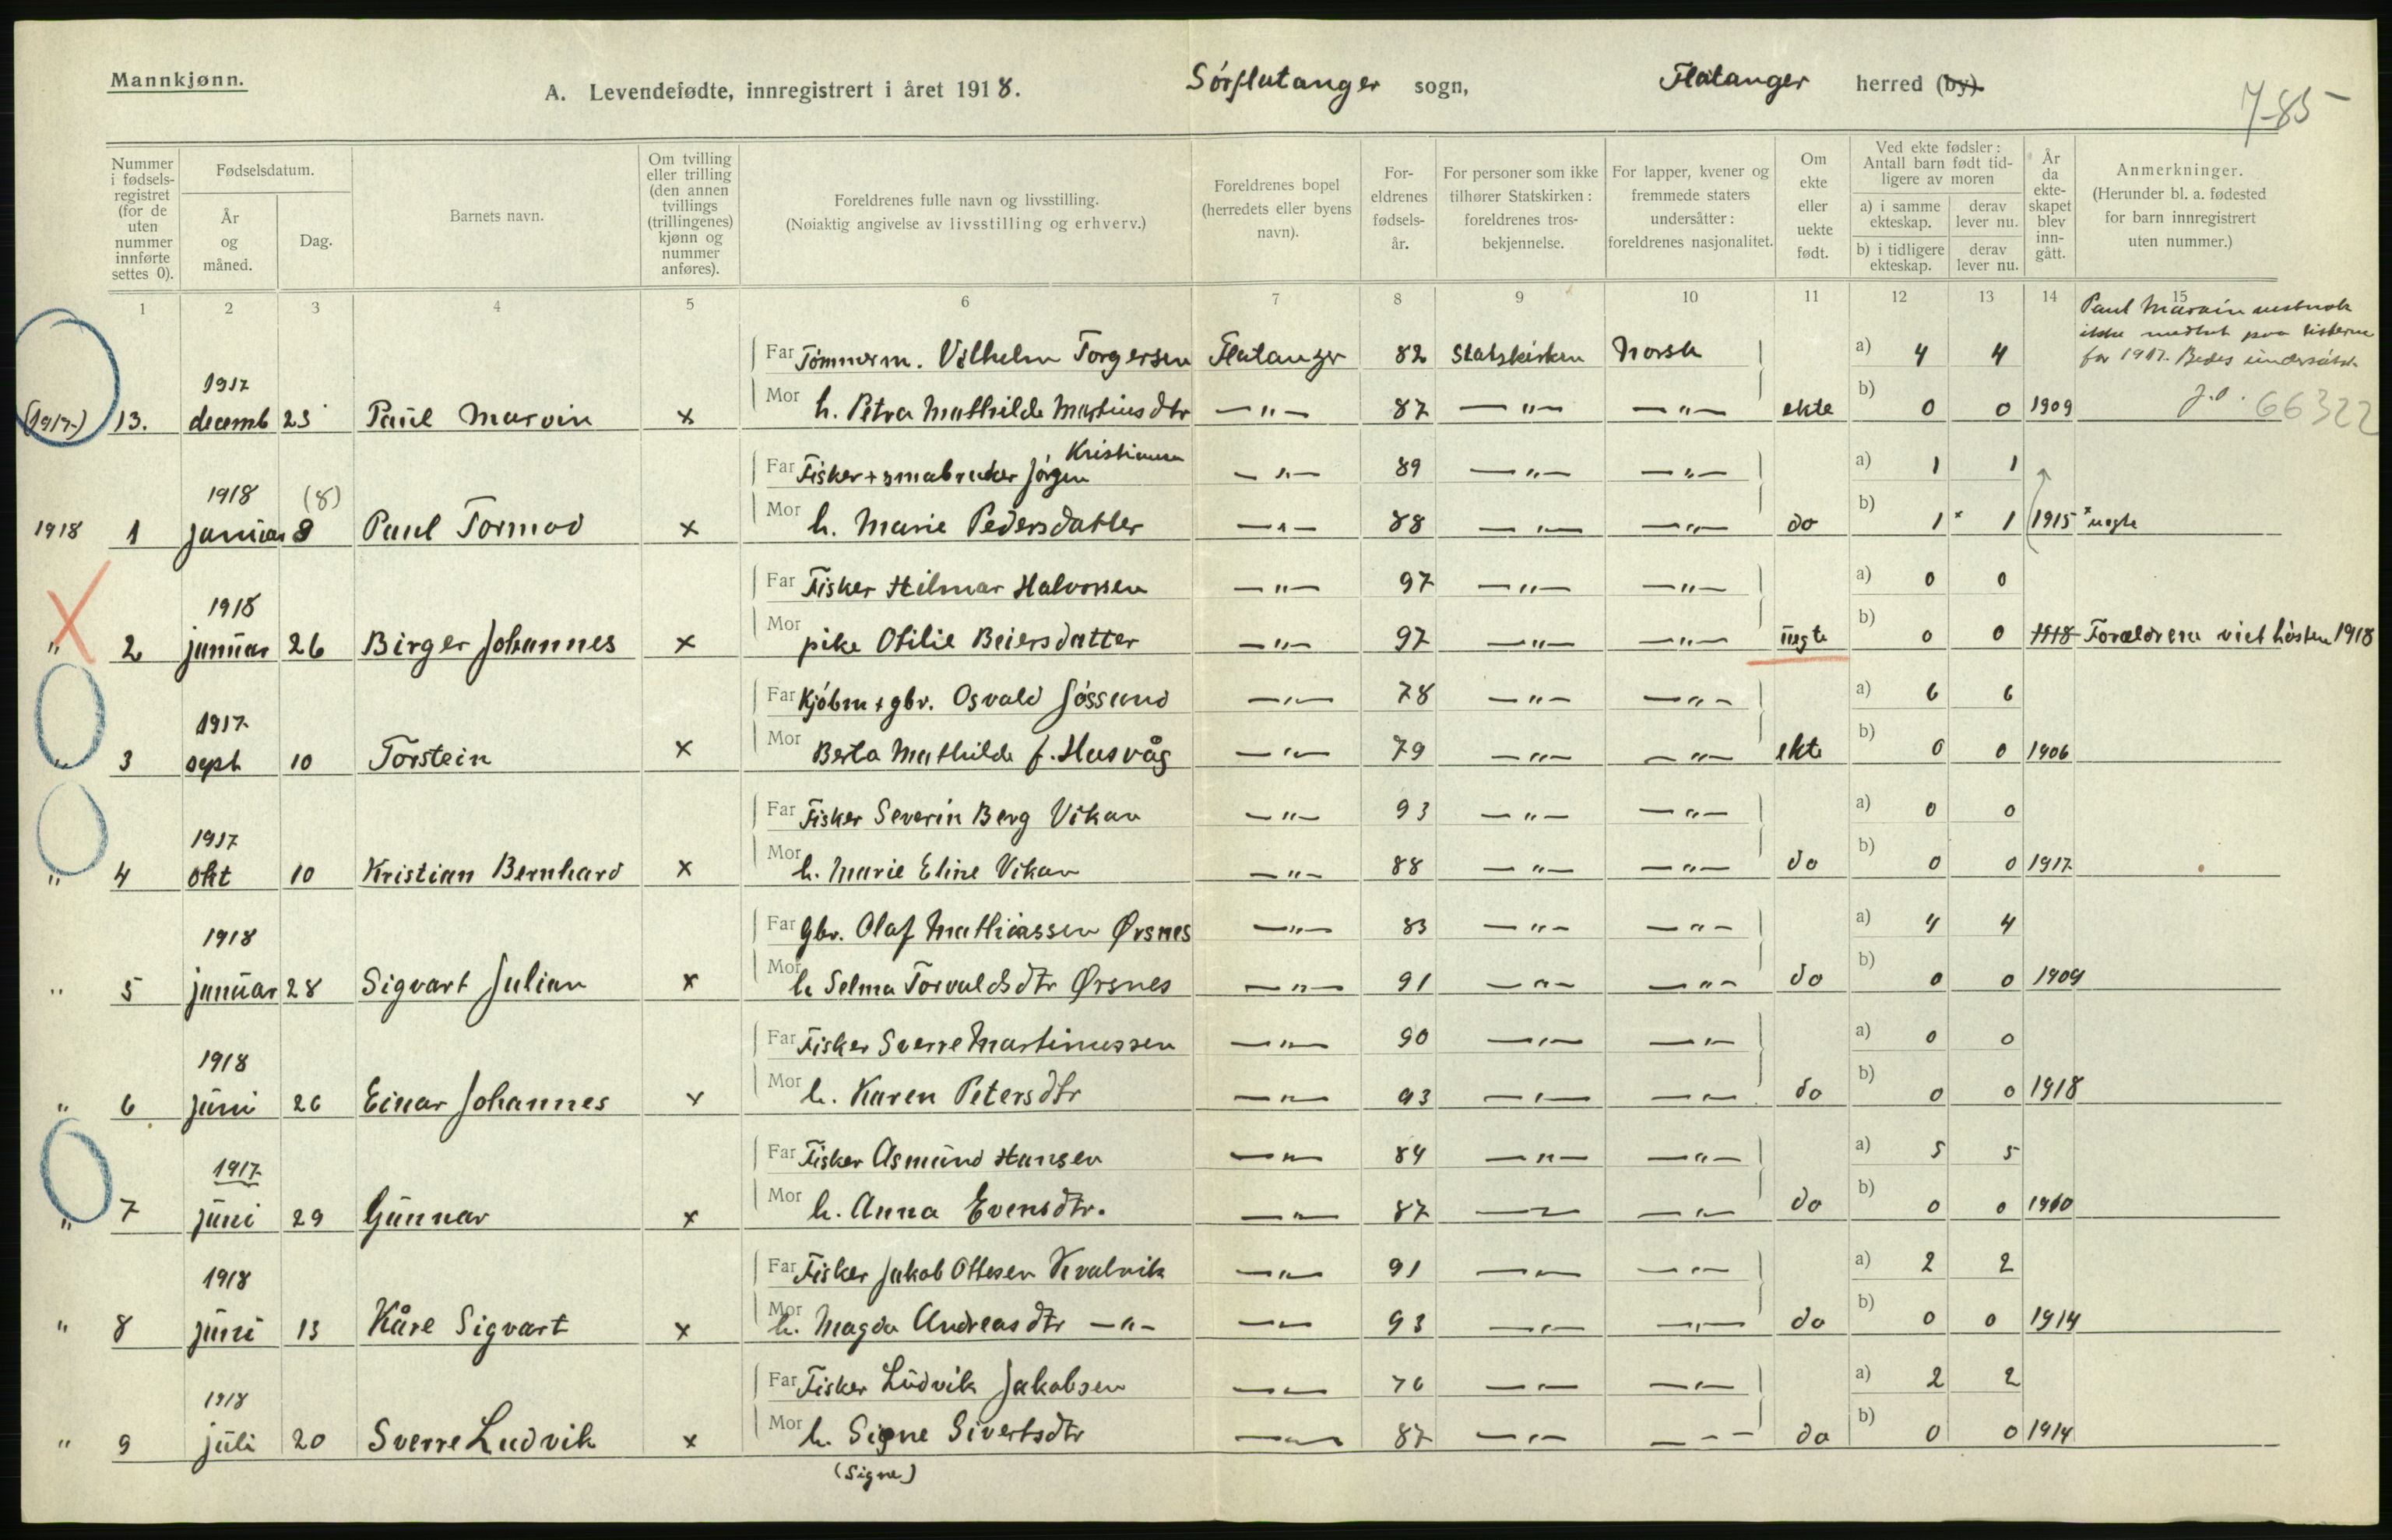 Mannkjønn.
A. Levendefødte, innregistrert i året 1918.
Sörflatanger sogn,
Flatanger herred (by).
7-85
Nummer i fødsels-registret (for de uten nummer innførte settes 0).
Fødselsdatum.
År og måned.
Dag.
Barnets navn.
Om tvilling eller trilling (den annen tvillings (trillingenes) kjønn og nummer anføres).
Foreldrenes fulle navn og livsstilling.
(Nøiaktig angivelse av livsstilling og erhverv.)
Foreldrenes bopel (herredets eller byens navn).
For-eldrenes fødsels-år.
For personer som ikke tilhører Statskirken: foreldrenes tros-bekjennelse.
For lapper, kvener og fremmede staters undersåtter: foreldrenes nasjonalitet.
Om ekte eller uekte født.
Ved ekte fødsler: Antall barn født tid-ligere av moren
a) i samme ekteskap.
derav lever nu.
b) i tidligere ekteskap.
derav lever nu.
År da ekte-skapet blev inn-gått.
Anmerkninger.
(Herunder bl. a. fødested for barn innregistrert uten nummer.)
1 2 3 4 5 6 7 8 9 10 11 12 13 14 15
Paul Marvin
for 1917. Bedes
Far Tömmerm. Vilhelm Torgersen Flatanger 82 Statskirken Norsk a) 4 4
1917
(1917) 13. decemb 23 Paul Marvin x Mor h. Petra Mathilde Martinsdtr —"— 87 —"— —"— ekte b) 0 0 1909 66322
Kristiansen
Far Fisker + småbruker Jörgen —"— 89 —"— —"— a) 1 1
1918 (8)
1918 1 januar 8 Paul Tormod x Mor h. Marie Pedersdatter —"— 88 —"— —"— do b) 1 x 1 1915 x uegte
Far Fisker Hilmar Halvorsen —"— 97 —"— —"— a) 0 0
1918
" 2 januar 26 Birger Johannes x Mor pike Otilie Beiersdatter —"— 97 —"— —"— uegte b) 0 0 1918 Forældrene viet hösten 1918
Far Kjöbm + gbr. Osvald Jössund —"— 78 —"— —"— a) 6 6
1917
" 3 sept 10 Torstein x Mor Berta Mathilde f. Husvåg —"— 79 —"— —"— ekte b) 0 0 1906
Far Fisker Severin Berg Vikan —"— 93 —"— —"— a) 0 0
1917
" 4 okt 10 Kristian Bernhard x Mor h. Marie Eline Vikan —"— 88 —"— —"— do b) 0 0 1917
Far Gbr. Olaf Mathiassen Ørsnes —"— 83 —"— —"— a) 4 4
1918
" 5 januar 28 Sigvart Julian x Mor h Selma Torvaldsdtr Ørsnes —"— 91 —"— —"— do b) 0 0 1909
Far Fisker Sverre Martinussen —"— 90 —"— —"— a) 0 0
1918
" 6 juni 26 Einar Johannes x Mor h. Karen Petersdtr —"— 93 —"— —"— do b) 0 0 1918
Far Fisker Asmund Hansen —"— 84 —"— —"— a) 5 5
1917
" 7 juni 29 Gunnar x Mor h. Anna Evensdtr. —"— 87 —"— —"— do b) 0 0 1910
Far Fisker Jakob Ottesen Kvalvik —"— 91 —"— —"— a) 2 2
1918
" 8 juni 13 Kåre Sigvart x Mor h. Magda Andreasdtr —"— —"— 93 —"— —"— do b) 0 0 1914
Far Fisker Ludvik Jakobsen —"— 76 —"— —"— a) 2 2
1918
" 9 juli 20 Sverre Ludvik x Mor h. Signe Sivertsdtr —"— 87 —"— — – – do b) 0 0 1914
(Signe)